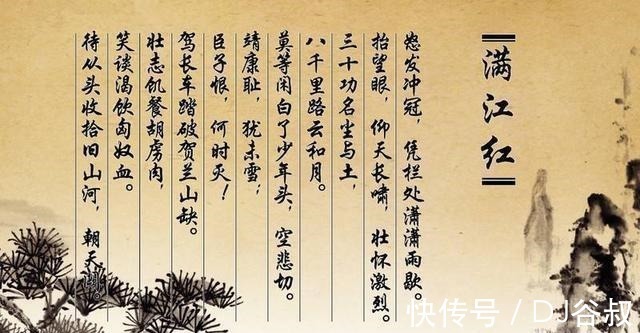 满江红
怒发冲冠，凭栏处潇潇雨歇。
抬望眼，仰天长啸，壮怀激烈。
三十功名尘与土，
八千里路云和月。
莫等闲白了少年头，空悲切。
靖康耻，犹未雪；
臣子恨，何时灭！
驾长车踏破贺兰山缺。
壮志饥餐胡虏肉，
笑谈渴饮匈奴血。
待从头收拾旧山河，朝天。
快传号 / DJ谷叔